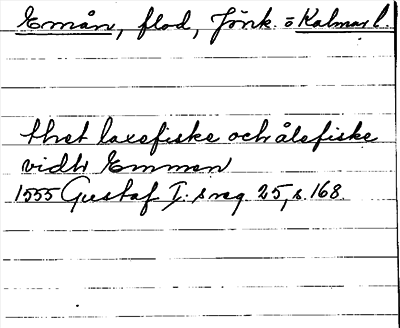 Emån, flod, Jönk. o Kalmar l.
thet laxefiske och ålefiske
vidh Emmen
1555 Gustaf I:s reg. 25, s. 168.